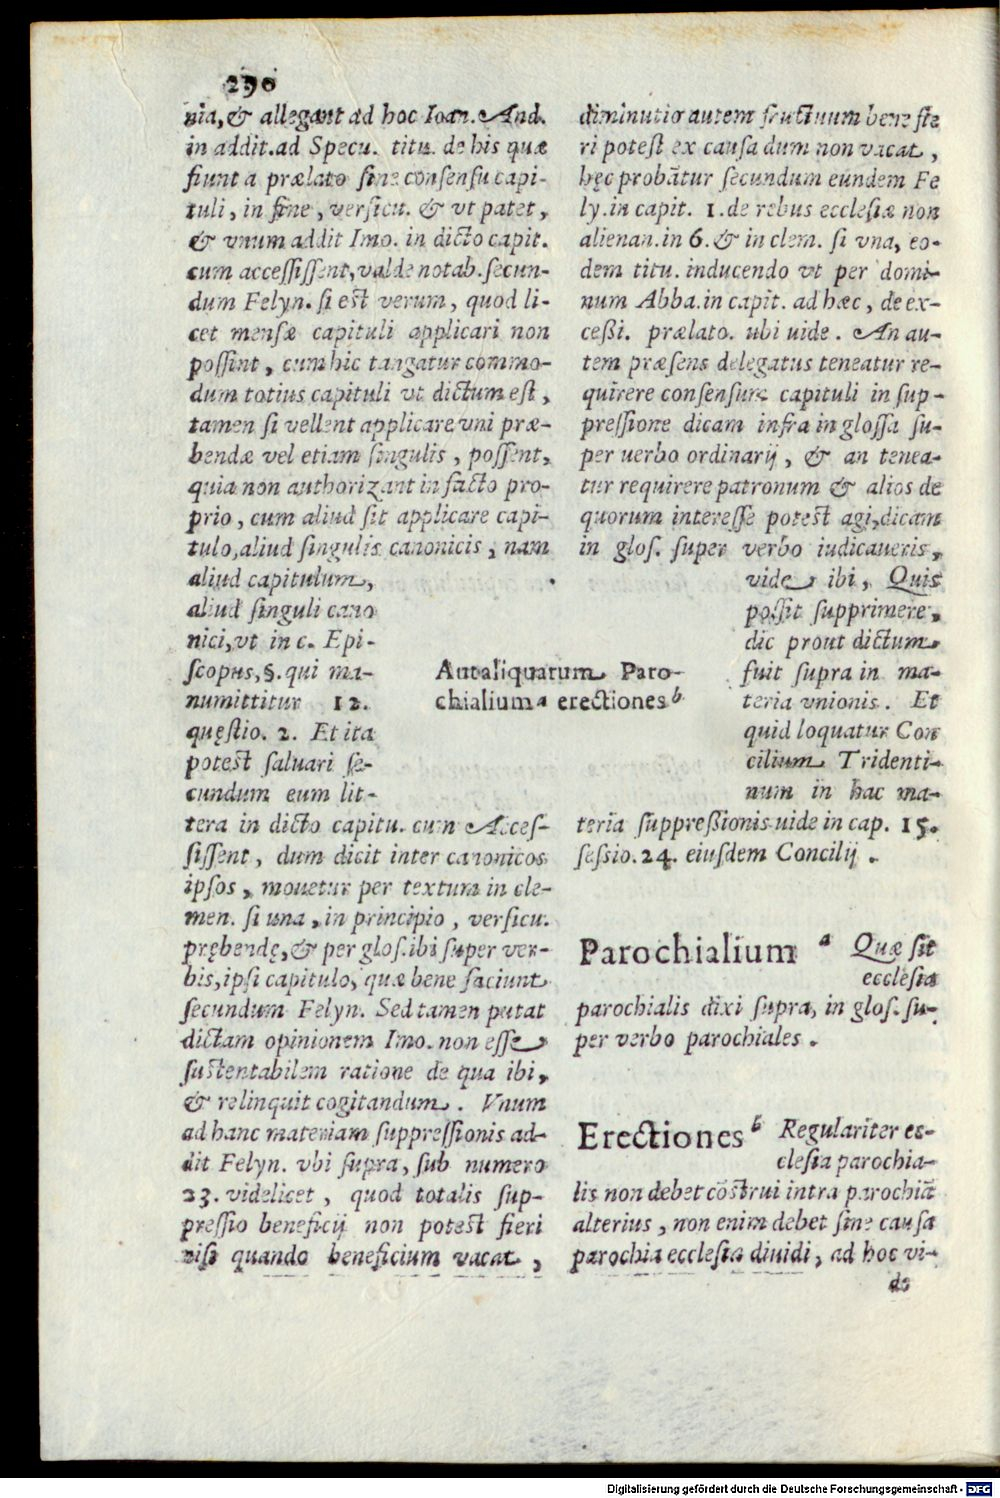 290
nia, & allegant ad hoc Ioan. And.
in addit. ad Specu. titu. de his quæ
fiunt a prælato sine consensu capi-
tuli, in fine, versicu. & vt patet,
& vnum addit Imo. in dicto capit.
cum accessissent, valde notab. secun-
dum Felyn. si est verum, quod li-
cet mensæ capituli applicari non
possint, cum hic tangatur commo-
dum totius capituli vt dictum est,
tamen si vellent applicare vni præ-
bendæ vel etiam singulis, possent,
quia non authorizant in facto pro-
prio, cum aliud sit applicare capi-
tulo, aliud singulis canonicis, nam
aliud capitulum,
aliud singuli cano
nici, vt in c. Epi-
scopus, §. qui ma-
numittitur 12.
quęstio. 2. Et ita
potest saluari se-
cundum eum lit-
tera in dicto capitu. cum Acces-
sissent, dum dicit inter canonicos
ipsos, mouetur per textum in cle-
men. si una, in principio, versicu.
prębendę, & per glos. ibi super ver-
bis, ipsi capitulo, quæ bene faciunt
secundum Felyn. Sed tamen putat
dictam opinionem Imo. non esse
sustentabilem ratione de qua ibi,
& relinquit cogitandum. Vnum
ad hanc materiam suppressionis ad-
dit Felyn. vbi supra, sub numero
23. videlicet, quod totalis sup-
pressio beneficij non potest fieri
nisi quando beneficium vacat,
Autaliquarum Paro-
chialium a erectiones b
diminutio autem fructuum bene fie
ri potest ex causa dum non vacat,
hęc probãtur secundum eundem Fe
ly. in capit. 1. de rebus ecclesiæ non
alienan. in 6. & in clem. si vna, eo-
dem titu. inducendo vt per domi-
num Abba. in capit. ad hæc, de ex-
cessi. prælato. ubi uide. An au-
tem præsens delegatus teneatur re-
quirere consensum capituli in sup-
pressione dicam infra in glossa su-
per uerbo ordinarij, & an tenea-
tur requirere patronum & alios de
quorum interesse potest agi, dicam
in glos. super verbo iudicaueris,
vide ibi, Quis
possit supprimere,
dic prout dictum
fuit supra in ma-
teria vnionis. Et
quid loquatur Con
cilium Tridenti-
num in hac ma-
teria suppressionis uide in cap. 15.
sessio. 24. eiusdem Concilij.
Parochialium a Quæ sit
ecclesia
parochialis dixi supra, in glos. su-
per verbo parochiales.
Erectiones b Regulariter ec-
clesia parochia-
lis non debet cõstrui intra parochiã
alterius, non enim debet sine causa
parochia ecclesia diuidi, ad hoc vi-
de
Digitalisierung gefördert durch die Deutsche Forschungsgemeinschaft - DFG